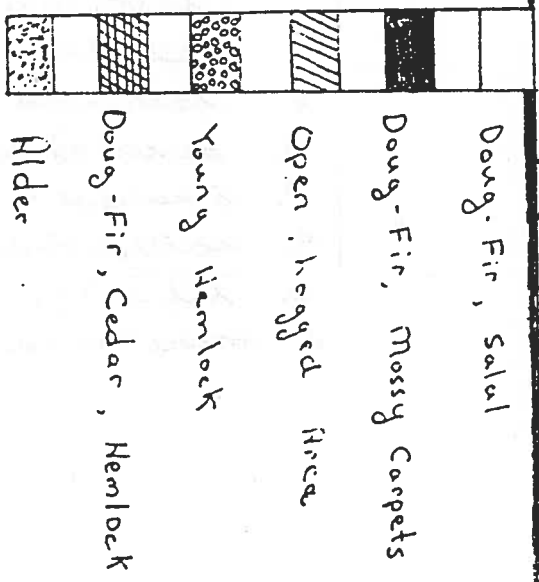 Doug-Fir, Salal
Doug-Fir, Mossy Carpets
Open, Logged Area
Young Hemlock
Doug-Fir, Cedar, Hemlock
Alder